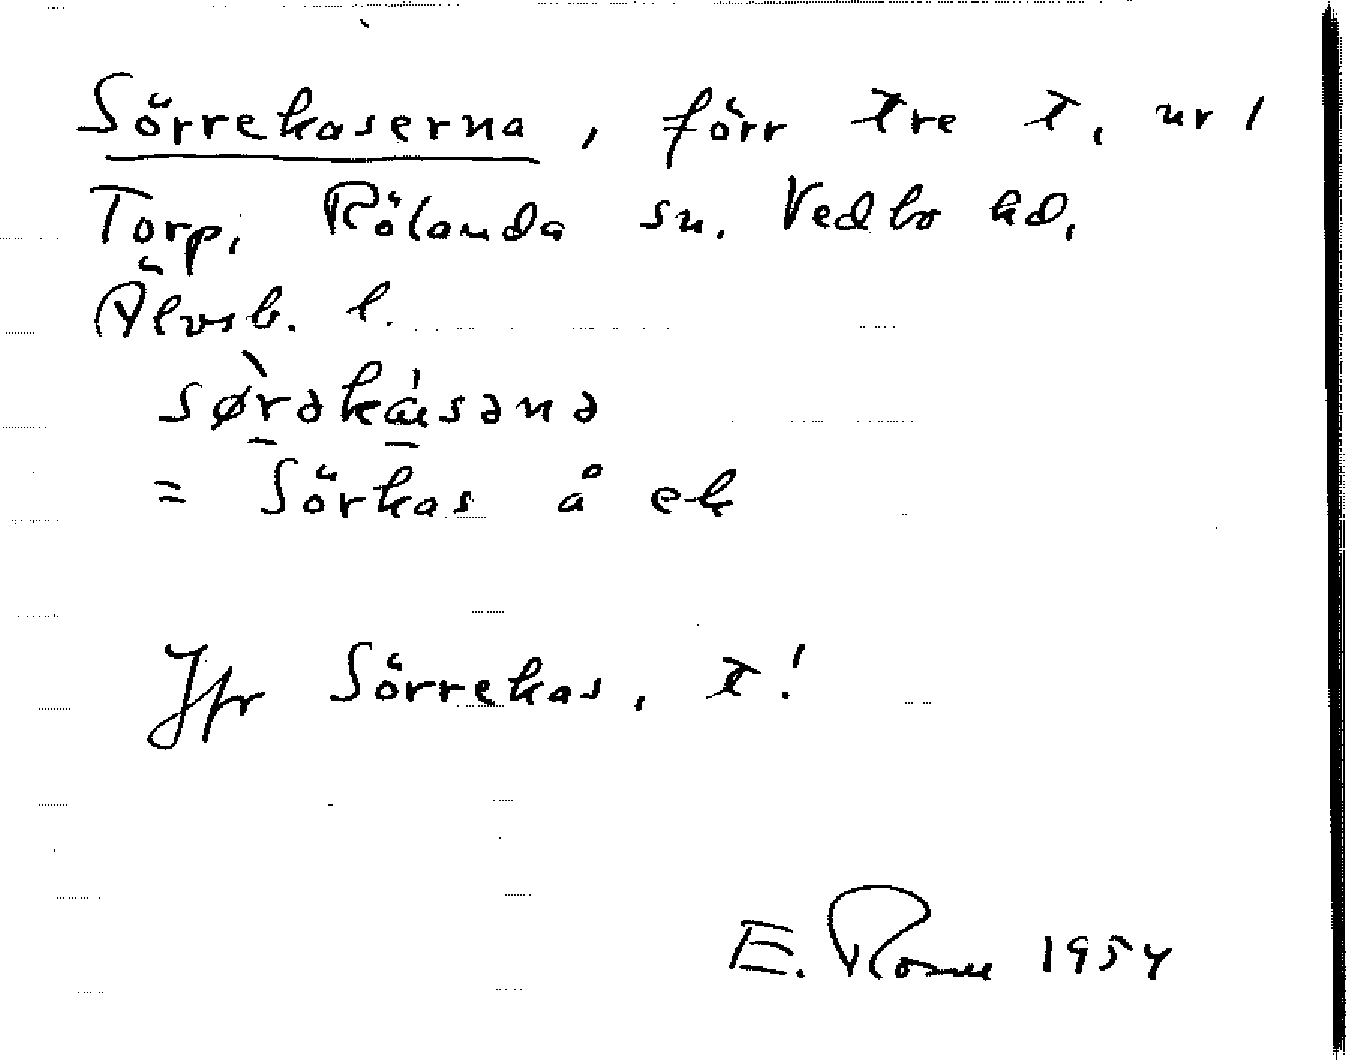 Sörrekaserna, förr tre t, nr 1
Torp, Rölanda sn. Vedbo hd,
Älvsb. l.
= Sörkas å ek
Jfr Sörrekas, t!
E. 1954